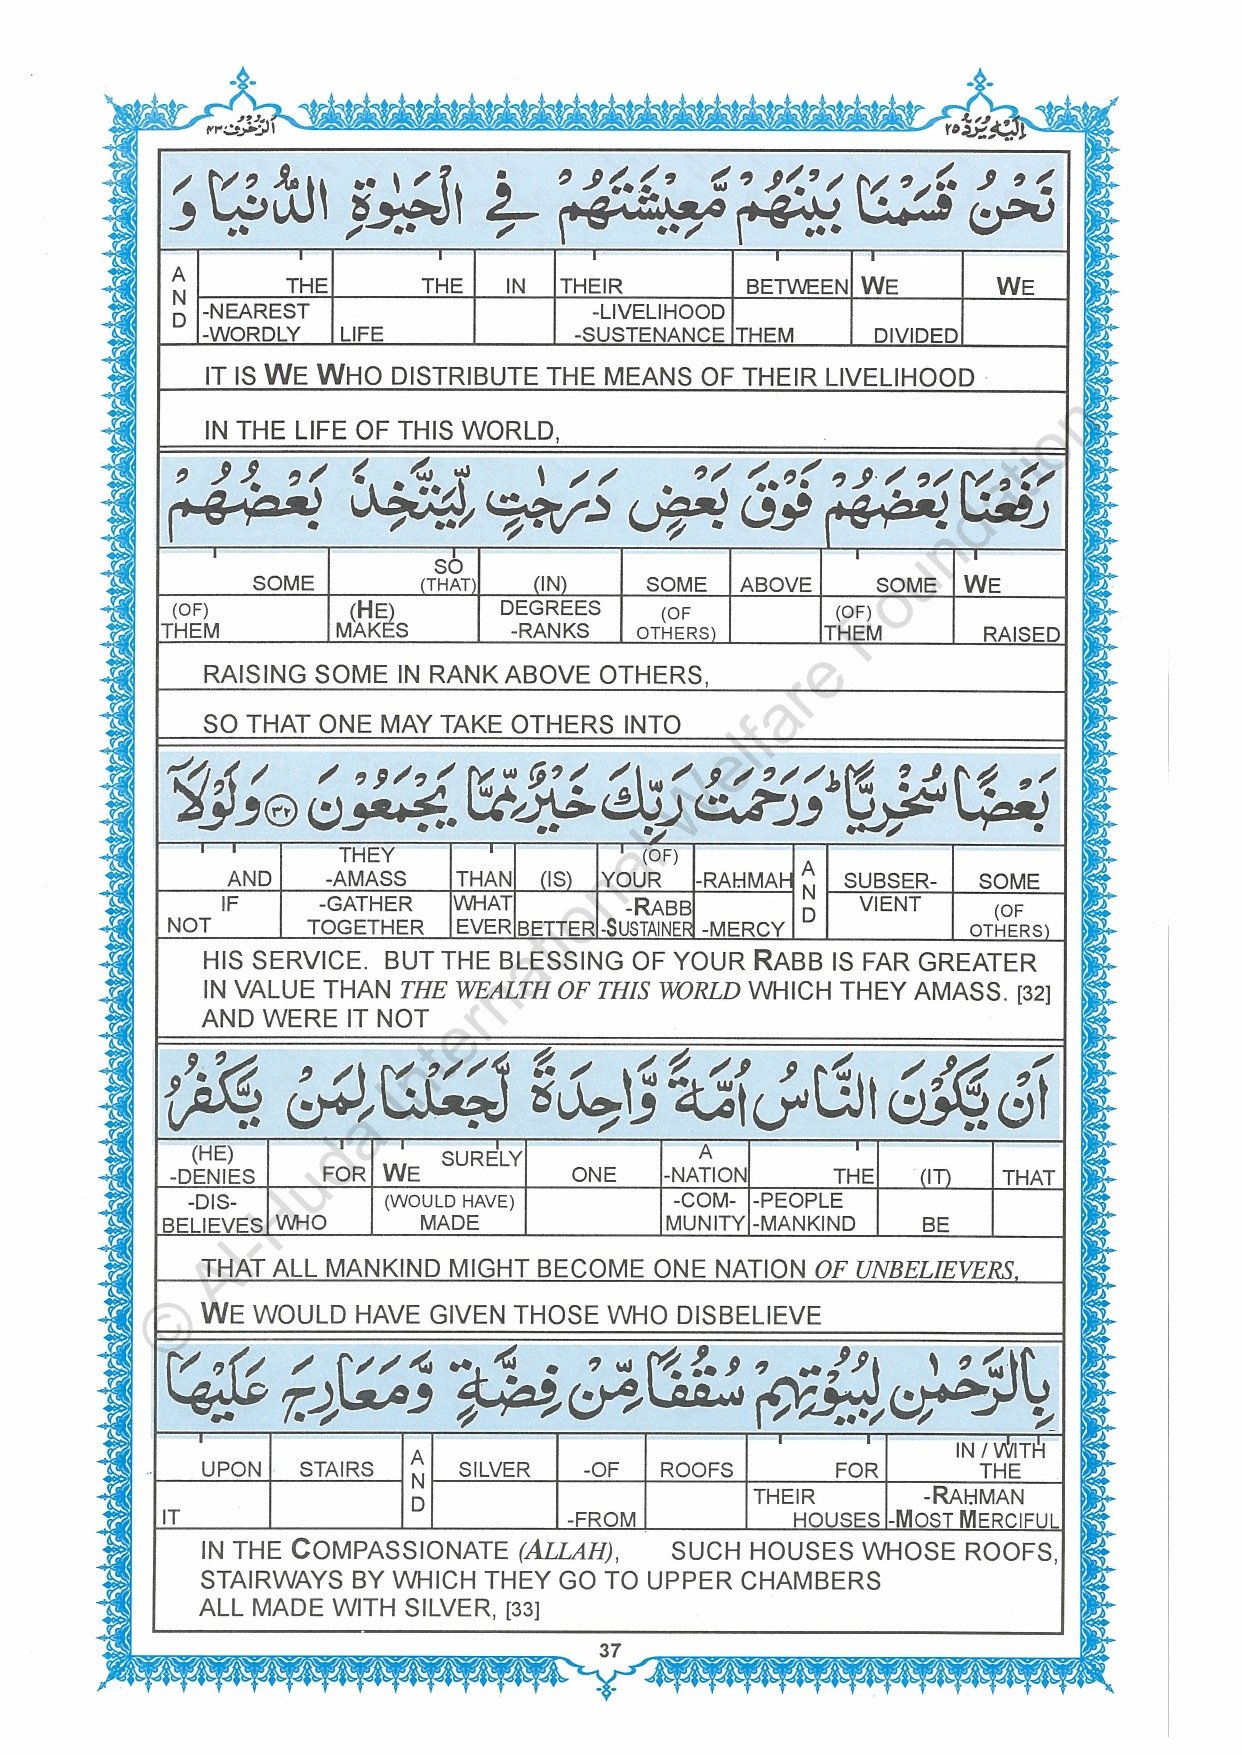 الزخرف ٤٣
اليه يرد ٢٥
نَحْنُ قَسَمْنَا بَيْنَهُمْ مَّعِيْشَتَهُمْ فِي الْحَيٰوةِ الدُّنْيَا وَ
WE WE BETWEEN THEIR IN THE THE AND
DIVIDED THEM -LIVELIHOOD LIFE -NEAREST
-SUSTENANCE -WORDLY
IT IS WE WHO DISTRIBUTE THE MEANS OF THEIR LIVELIHOOD
IN THE LIFE OF THIS WORLD,
رَفَعْنَا بَعْضَهُمْ فَوْقَ بَعْضٍ دَرَجٰتٍ لِّيَتَّخِذَ بَعْضُهُمْ
WE SOME ABOVE SOME (IN) SO (THAT) SOME
RAISED (OF) THEM (OF OTHERS) DEGREES -RANKS (HE) MAKES (OF) THEM
RAISING SOME IN RANK ABOVE OTHERS,
SO THAT ONE MAY TAKE OTHERS INTO
بَعْضًا سُخْرِيًّا ؕ وَرَحْمَتُ رَبِّكَ خَيْرٌ مِّمَّا يَجْمَعُوْنَ ﴿٣٢﴾ وَلَوْلَآ
SOME SUBSER- AND -RAḤMAH (OF) YOUR (IS) THAN THEY -AMASS AND
(OF OTHERS) VIENT -MERCY -RABB -SUSTAINER BETTER WHAT EVER -GATHER TOGETHER IF NOT
HIS SERVICE. BUT THE BLESSING OF YOUR RABB IS FAR GREATER
IN VALUE THAN THE WEALTH OF THIS WORLD WHICH THEY AMASS. [32]
AND WERE IT NOT
اَنْ يَّكُوْنَ النَّاسُ اُمَّةً وَّاحِدَةً لَّجَعَلْنَا لِمَنْ يَّكْفُرُ
THAT (IT) THE A -NATION ONE SURELY WE FOR (HE) -DENIES
BE -PEOPLE -MANKIND -COM- MUNITY (WOULD HAVE) MADE WHO -DIS- BELIEVES
THAT ALL MANKIND MIGHT BECOME ONE NATION OF UNBELIEVERS,
WE WOULD HAVE GIVEN THOSE WHO DISBELIEVE
بِالرَّحْمٰنِ لِبُيُوْتِهِمْ سُقُفًا مِّنْ فِضَّةٍ وَّمَعَارِجَ عَلَيْهَا
IN / WITH THE FOR ROOFS -OF SILVER AND STAIRS UPON
-RAḤMAN -MOST MERCIFUL THEIR HOUSES -FROM IT
IN THE COMPASSIONATE (ALLAH), SUCH HOUSES WHOSE ROOFS,
STAIRWAYS BY WHICH THEY GO TO UPPER CHAMBERS
ALL MADE WITH SILVER, [33]
37
© Al-Huda International Welfare Foundation